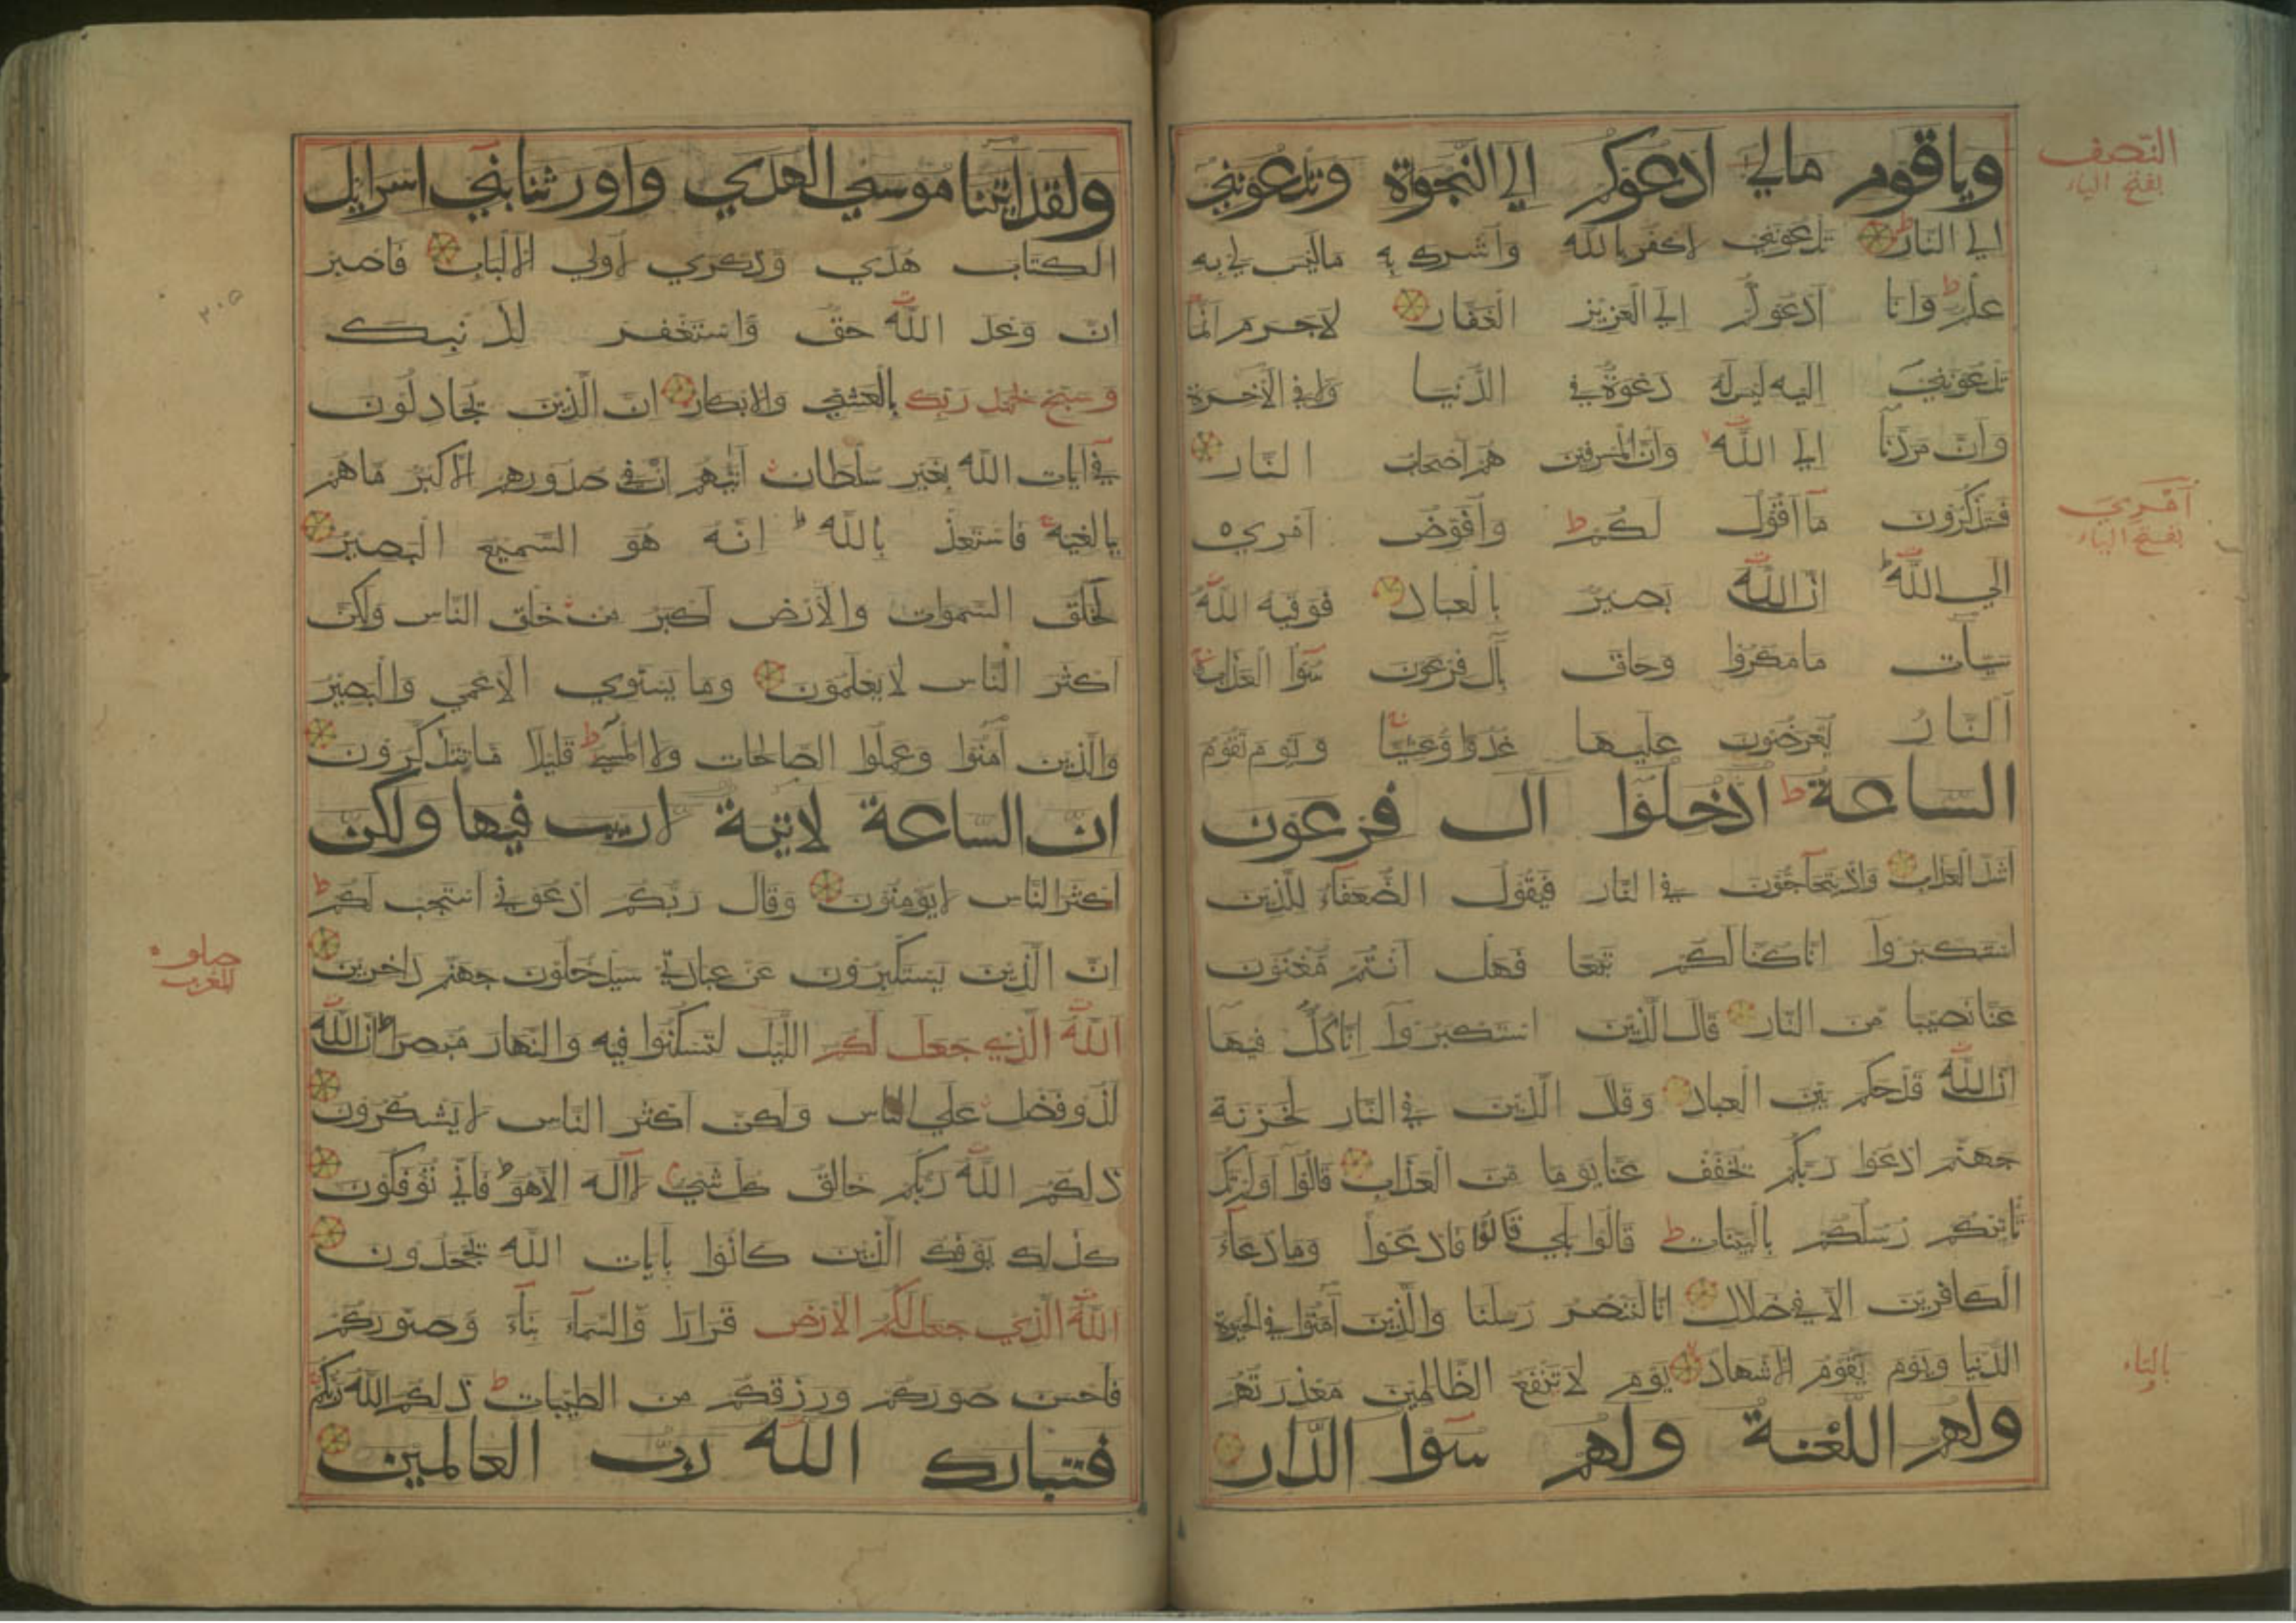 وياقوم مالي ادعوكم الي النجوة وتدعونني
الي النار تدعونني لاكفر بالله واشرك به ماليس لي به
علم وانا ادعوكم الي العزيز الغفار لاجرم انما
تدعونني اليه ليس له دعوة في الدنيا ولا في الآخرة
وان مردنا الي الله وان المسرفين هم اصحاب النار
فستذكرون ما اقول لكم وافوض امري
الي الله ان الله بصير بالعباد فوقيه الله
سيآت مامكروا وحاق بآل فرعون سوا العذاب
النار يعرضون عليها غدوا وعشيا ويوم تقوم
الساعة ادخلوا آل فرعون
اشد العذاب واذ يتحاجون في النار فيقول الضعفاء للذين
استكبروا انا كنا لكم تبعا فهل انتم مغنون
عنا نصيبا من النار قال الذين استكبروا انا كل فيها
ان الله قد حكم بين العباد وقال الذين في النار لخزنة
جهنم ادعوا ربكم يخفف عنا يوما من العذاب قالوا اولم تك
تاتيكم رسلكم بالبينات قالوا بلي قالوا فادعوا ومادعاء
الكافرين الا في ضلال انا لننصر رسلنا والذين آمنوا في الحيوة
الدنيا ويوم يقوم الاشهاد يوم لا تنفع الظالمين معذرتهم
ولهم اللعنة ولهم سوا الدار
النصف
بفتح الياء
امري
بفتح الياء
بالتاء
ولقد اتينا موسي الهدي واورثنا بني اسرايل
الكتاب هدي وذكري لاولي الالباب فاصبر
ان وعد الله حق واستغفر لذنبك
وسبح بحمد ربك بالعشي والابكار ان الذين يجادلون
في آيات الله بغير سلطان اتيهم ان في صدورهم الا كبر ماهم
ببالغيه فاستعذ بالله انه هو السميع البصير
لخلق السموات والارض اكبر من خلق الناس ولكن
اكثر الناس لا يعلمون وما يستوي الاعمي والبصير
والذين آمنوا وعملوا الصالحات ولا المسي قليلا ما تتذكرون
ان الساعة لاتية لاريب فيها ولكن
اكثر الناس لايؤمنون وقال ربكم ادعوني استجب لكم
ان الذين يستكبرون عن عبادتي سيدخلون جهنم داخرين
الله الذي جعل لكم الليل لتسكنوا فيه والنهار مبصرا ان الله
لذو فضل علي الناس ولكن اكثر الناس لايشكرون
ذلكم الله ربكم خالق كل شيئ لا اله الا هو فاني تؤفكون
كذلك يؤفك الذين كانوا بآيات الله يجحدون
الله الذي جعل لكم الارض قرارا والسماء بناء وصوركم
فاحسن صوركم ورزقكم من الطيبات ذلكم الله ربكم
فتبارك الله رب العالمين
٢٠٥
للمغرب